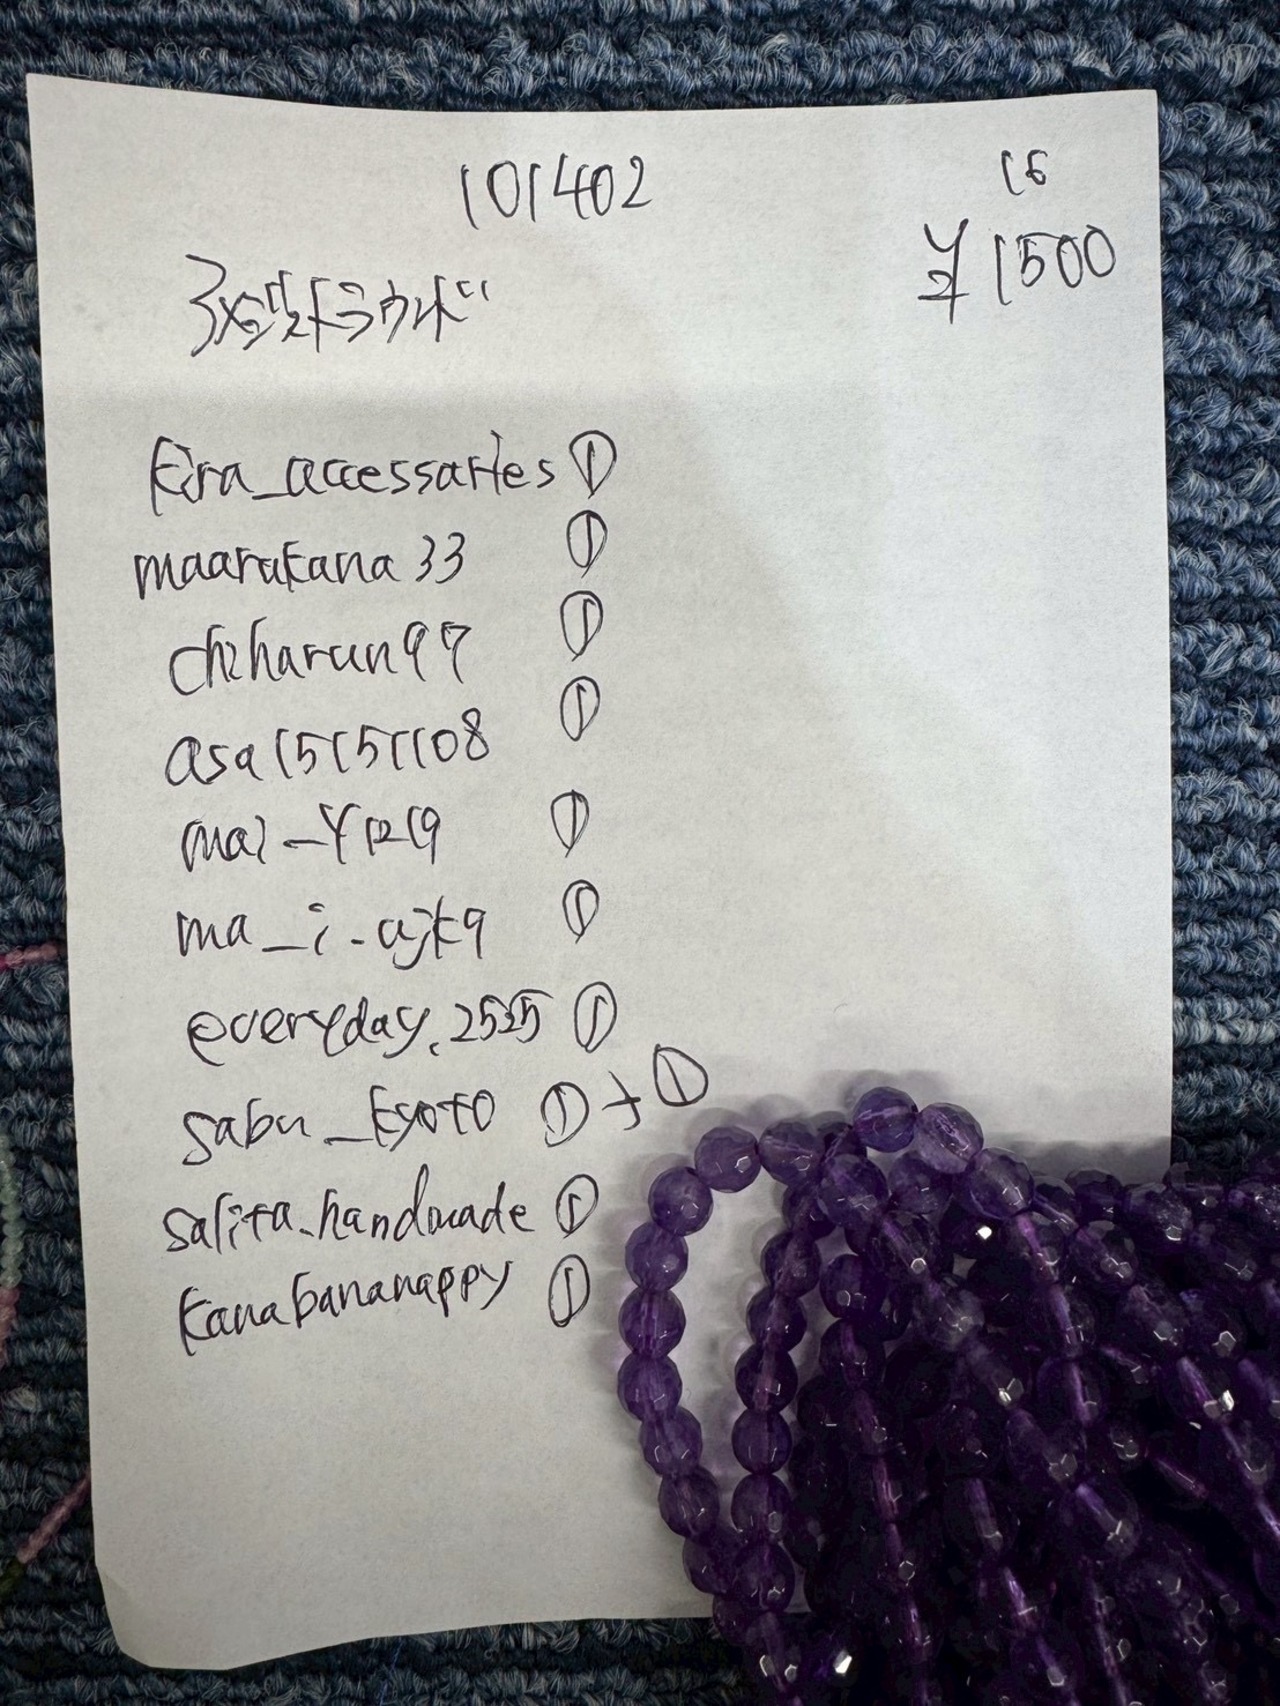 101402
16
¥1500
ラウンド
kira_accessaries ①
maarakana33 ①
chiharun97 ①
asa15151108 ①
mai_y1219 ①
ma_i.ajk9 ①
everyday.2525 ①
sabu_kyoto ①+①
salita.handmade ①
kanabananappy ①